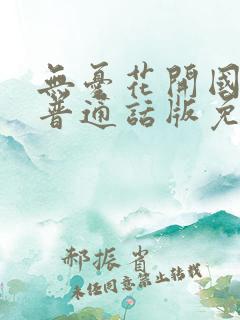 無憂花開國
普通話版免
郝振省
未经同意禁止转载